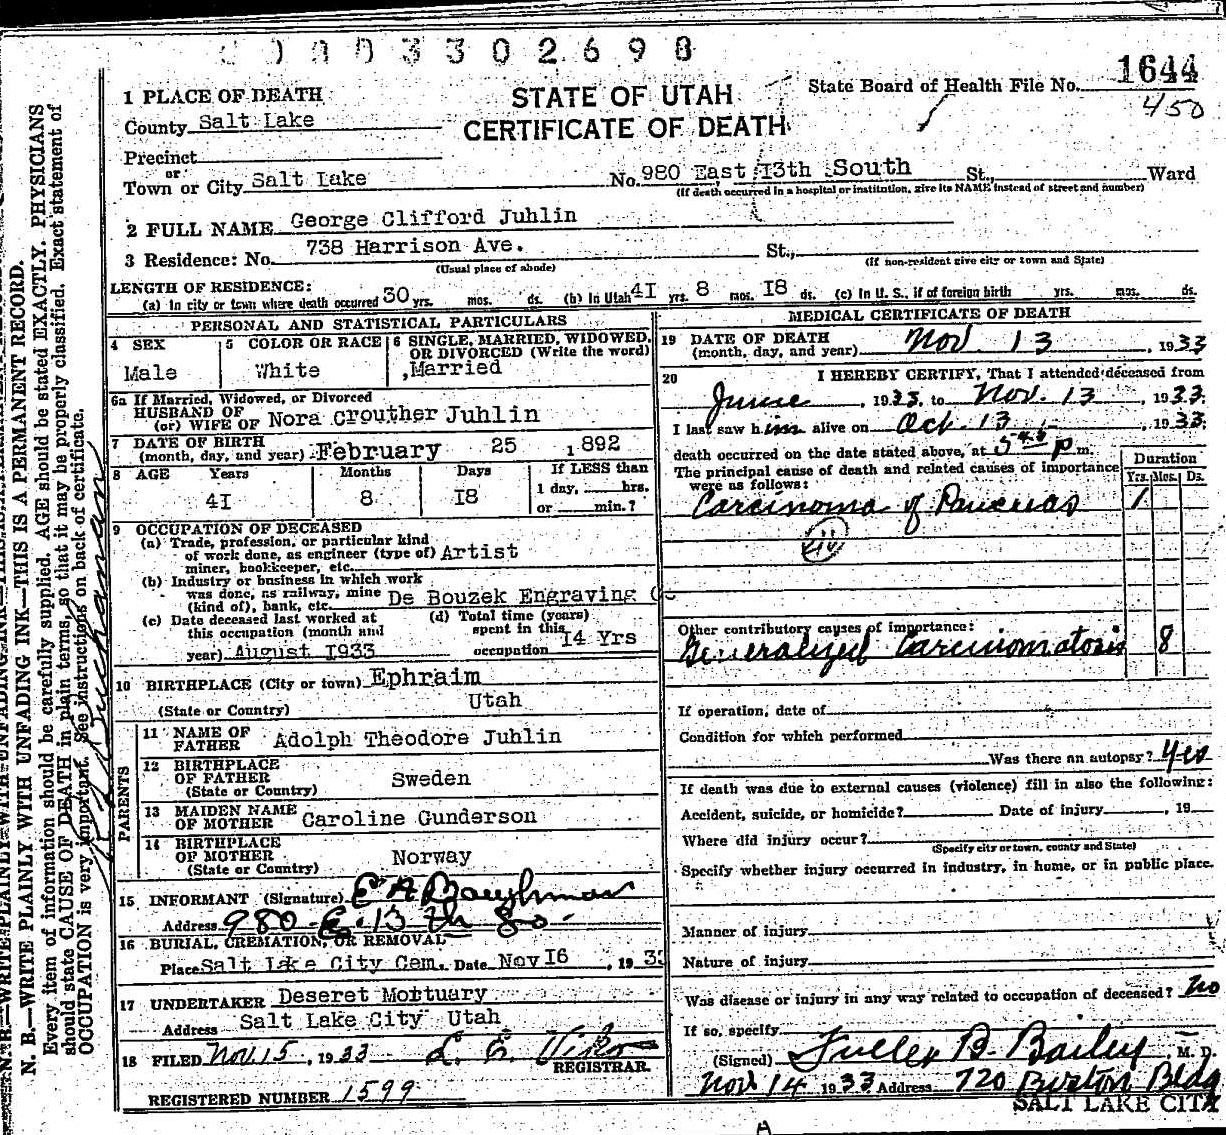 0003302698
1644
450
STATE OF UTAH
CERTIFICATE OF DEATH
State Board of Health File No.
1 PLACE OF DEATH
County Salt Lake
Precinct
or
Town or City Salt Lake No. 980 East 13th South St., Ward
(If death occurred in a hospital or institution, give its NAME instead of street and number)
2 FULL NAME George Clifford Juhlin
3 Residence: No. 738 Harrison Ave. St.,
(Usual place of abode) (If non-resident give city or town and State)
LENGTH OF RESIDENCE:
(a) In city or town where death occurred 30 yrs. mos. ds. (b) In Utah 41 yrs. 8 mos. 18 ds. (c) In U. S., if of foreign birth yrs. mos. ds.
PERSONAL AND STATISTICAL PARTICULARS
4 SEX
Male
5 COLOR OR RACE
White
6 SINGLE, MARRIED, WIDOWED, OR DIVORCED (Write the word)
,Married
6a If Married, Widowed, or Divorced
HUSBAND OF
(or) WIFE OF Nora Crouther Juhlin
7 DATE OF BIRTH
(month, day, and year) February 25 1892
8 AGE Years Months Days If LESS than
41 8 18 1 day, hrs.
or min.?
9 OCCUPATION OF DECEASED
(a) Trade, profession, or particular kind
of work done, as engineer (type of) Artist
miner, bookkeeper, etc.
(b) Industry or business in which work
was done, as railway, mine
(kind of), bank, etc. De Bouzek Engraving Co
(c) Date deceased last worked at
this occupation (month and
year) August 1933
(d) Total time (years)
spent in this
occupation 14 Yrs
10 BIRTHPLACE (City or town) Ephraim
(State or Country) Utah
PARENTS
11 NAME OF
FATHER Adolph Theodore Juhlin
12 BIRTHPLACE
OF FATHER Sweden
(State or Country)
13 MAIDEN NAME
OF MOTHER Caroline Gunderson
14 BIRTHPLACE
OF MOTHER Norway
(State or Country)
15 INFORMANT (Signature) E A Baughman
Address 980 E. 13 th So.
16 BURIAL, CREMATION, OR REMOVAL
Place Salt Lake City Cem. Date Nov 16, 1933
17 UNDERTAKER Deseret Mortuary
Address Salt Lake City Utah
18 FILED Nov. 15, 1933 L. E.
REGISTRAR.
REGISTERED NUMBER 1599
MEDICAL CERTIFICATE OF DEATH
19 DATE OF DEATH
(month, day, and year) Nov. 13, 1933
20 I HEREBY CERTIFY, That I attended deceased from
June, 1933, to Nov. 13, 1933.
I last saw him alive on Oct. 13, 1933.
death occurred on the date stated above, at 5 p m.
The principal cause of death and related causes of importance
were as follows:
Duration
Yrs. Mos. Ds.
Carcinoma of Pancreas 1
Other contributory causes of importance:
Generalized Carcinomatosis 8
If operation, date of
Condition for which performed
Was there an autopsy? Yes
If death was due to external causes (violence) fill in also the following:
Accident, suicide, or homicide? Date of injury , 19
Where did injury occur?
(Specify city or town, county and State)
Specify whether injury occurred in industry, in home, or in public place.
Manner of injury
Nature of injury
Was disease or injury in any way related to occupation of deceased? No
If so, specify
(Signed) Fuller B. Bailey, M. D.
Nov 14 1933 Address 720 Boston Bldg
SALT LAKE CITY
N. B.—WRITE PLAINLY WITH UNFADING INK—THIS IS A PERMANENT RECORD.
Every item of information should be carefully supplied. AGE should be stated EXACTLY. PHYSICIANS
should state CAUSE OF DEATH in plain terms, so that it may be properly classified. Exact statement of
OCCUPATION is very important. See instructions on back of certificate.